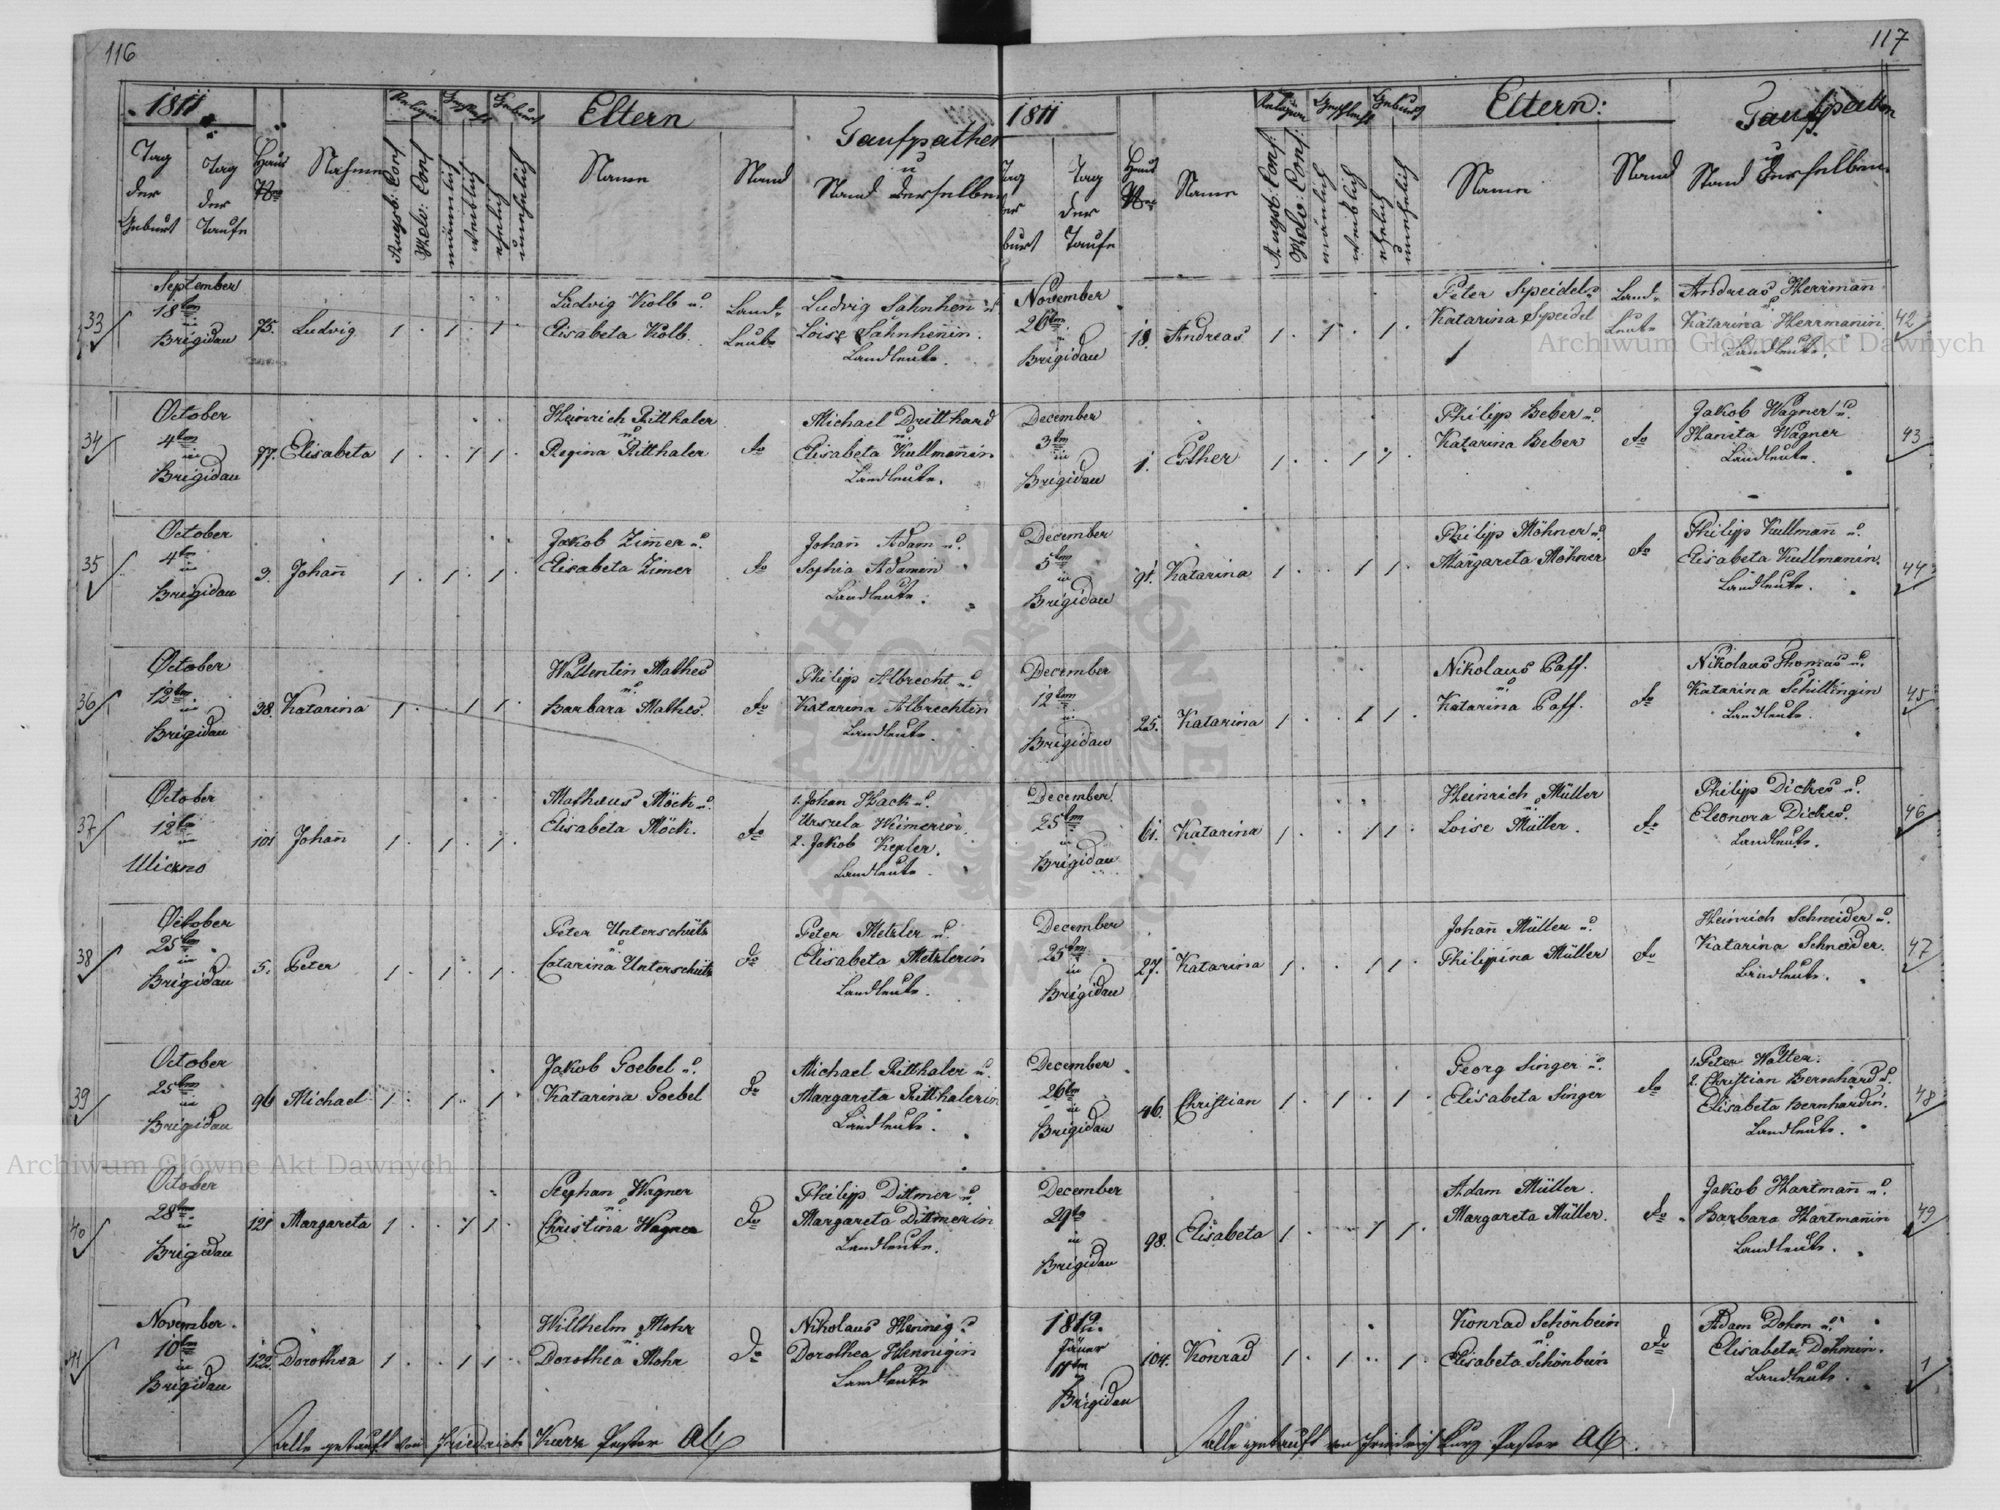 116
1811
Tag
der
Geburt
Tag
der
Taufe
Haus
Nro
Nahme
Religion
Augsb: Conf
Helv: Conf
Geschlecht
männlich
weiblich
Geburt
ehelich
unehelich
Eltern
Name
Stand
Taufpathen
u
Stand derselben
33
September
18tm
in
Brigidau
75.
Ludvig
1 . 1 . 1 .
Ludvig Kolb u.
Elisabeta Kolb.
Land-
Leute
Ludvig Sahnhen u.
Loise Sahnhenin.
Landleute.
34
October
4tm
in
Brigidau
77.
Elisabeta
1 . . 1 1 .
Heinrich Ritthaler
u.
Regina Ritthaler
do
Michael Dritthard
u.
Elisabeta Kullmannin
Landleute.
35
October
4tm
in
Brigidau
9.
Johann
1 . 1 . 1 .
Jakob Zimer u.
Elisabeta Zimer
do
Johann Adam u.
Sophia Adamen
Landleute.
36
October
12tm
in
Brigidau
38.
Katarina
1 . . 1 1 .
Wallentin Mathes
u.
Barbara Mathes.
do
Philipp Albrecht u.
Katarina Albrechtin
Landleute.
37
October
12t
in
Uliczno
101
Johann
1 . 1 . 1 .
Mathaus Möck u.
Elisabeta Möck.
do
1. Johan Hack u.
Ursula
2. Jakob Kepler.
Landleute.
38
October
25tm
in
Brigidau
5.
Peter
1 . 1 . 1 .
Peter Unterschütz
u.
Catarina Unterschütz
do
Peter Metzler u.
Elisabeta Metzlerin
Landleute.
39
October
25tm
in
Brigidau
96
Michael
1 . 1 . 1 .
Jakob Goebel u.
Katarina Goebel
do
Michael Ritthaler u.
Margareta Ritthalerin
Landleute.
40
October
28tm
in
Brigidau
121
Margareta
1 . . 1 1 .
Stephan Wagner
u.
Christina Wagner
do
Philipp Dittmer u.
Margareta Dittmerin
Landleute.
41
November.
10tm
in
Brigidau
122.
Dorothea
1 . . 1 1 .
Willhelm Mohr
u.
Dorothea Mohr
do
Nikolaus Hennig u.
Dorothea Hennigin
Landleute
Alle getauft von Friedrich Kurz Pastor AC
117
1811
Tag
der
burt
Tag
der
Taufe
Haus
Nro
Name
Religion
Augsb: Conf:
Helv: Conf:
Geschlecht
mänlich
weiblich
Geburt
ehelich
unehelich
Eltern:
Name
Stand
Taufpathen
u
Stand derselben
November
26tm
in
Brigidau
18.
Andreas
1 . 1 . 1 .
Peter Speidel u.
Katarina Speidel
Land-
Leute
Andreas Herrmann
u.
Katarina Herrmanin.
Landleute.
42
December
3tm
in
Brigidau
1.
Esther
1 . . 1 1 .
Philipp Beber u.
Katarina Beber
do
Jakob Wagner u.
Haneta Wagner
Landleute.
43
December
5tm
in
Brigidau
91.
Katarina
1 . . 1 1 .
Philipp Möhner u.
Margareta Möhner
do
Philipp Kullmann u.
Elisabeta Kullmanin.
Landleute.
44
December
12tm
in
Brigidau
25.
Katarina
1 . . 1 1 .
Nikolaus Paff.
u.
Katarina Paff.
do
Nikolaus Thomas u.
Katarina Schillingin
Landleute.
45
December.
25tm
in
Brigidau
61.
Katarina
1 . . 1 1 .
Heinrich Müller
u.
Loise Müller.
do
Philipp Dickes u.
Eleonora Dickes.
Landleute.
46
December
25tm
in
Brigidau
27.
Katarina
1 . . 1 1 .
Johann Müller u.
Philippina Müller
do
Heinrich Schneider u.
Katarina Schneider.
Landleute.
47
December
26tm
in
Brigidau
46.
Christian
1 . 1 . 1 .
Georg Singer u.
Elisabeta Singer
do
1. Peter Walter.
2. Christian Bernhard u.
Elisabeta Bernhardin.
Landleute.
48
December
29tn
in
Brigidau
98.
Elisabeta
1 . . 1 1 .
Adam Müller.
Margareta Müller.
do
Jakob Hartmann u.
Barbara Hartmannin
Landleute.
49
1812.
Jäner
Brigidau
104.
Konrad
1 . 1 . 1 .
Konrad Schönbein
u.
Elisabeta Schönbein
do
Adam Dohm u.
Elisabeta Dohmin.
Landleute.
1
Alle getauft von Friedrich Kurz Pastor AC.
Archiwum Główne Akt Dawnych
Archiwum Główne Akt Dawnych